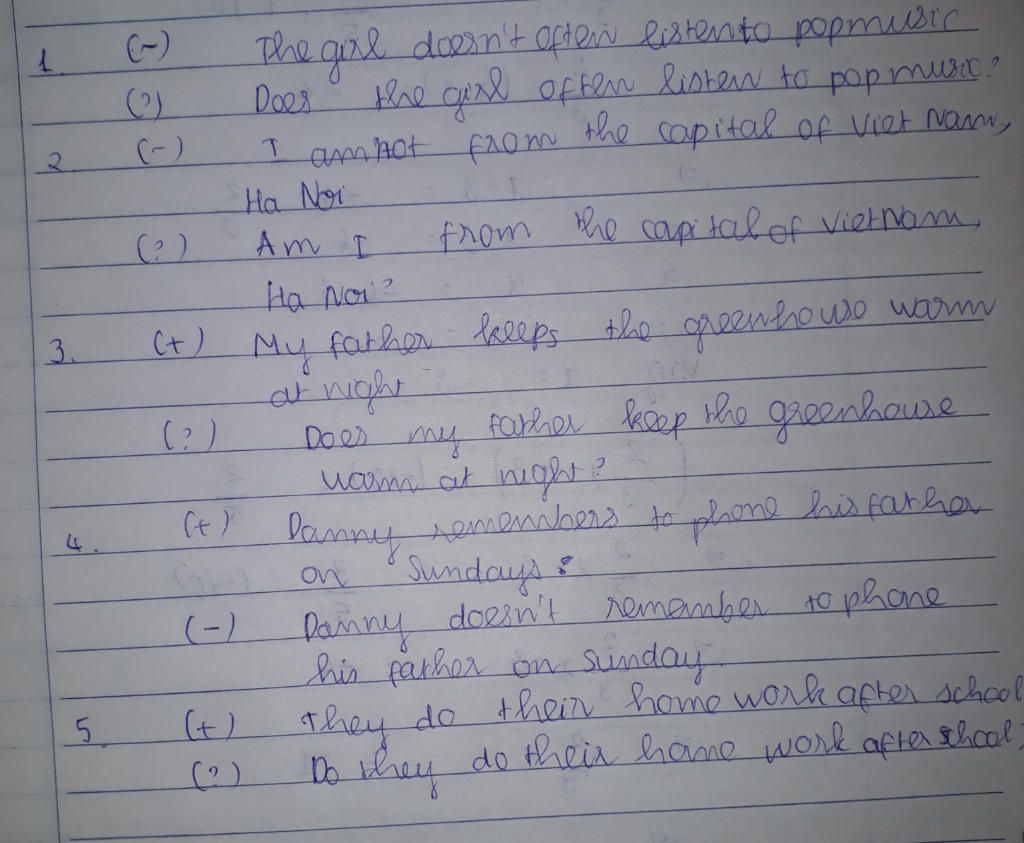 1. (-) The girl doesn't often listen to pop music
(?) Does the girl often listen to pop music?
2. (-) I am not from the capital of Viet Nam,
Ha Noi
(?) Am I from the capital of Viet Nam,
Ha Noi?
3. (+) My father keeps the greenhouse warm
at night
(?) Does my father keep the greenhouse
warm at night?
4. (+) Danny remembers to phone his father
on Sundays.
(-) Danny doesn't remember to phone
his father on Sunday.
5. (+) They do their home work after school
(?) Do they do their home work after school?